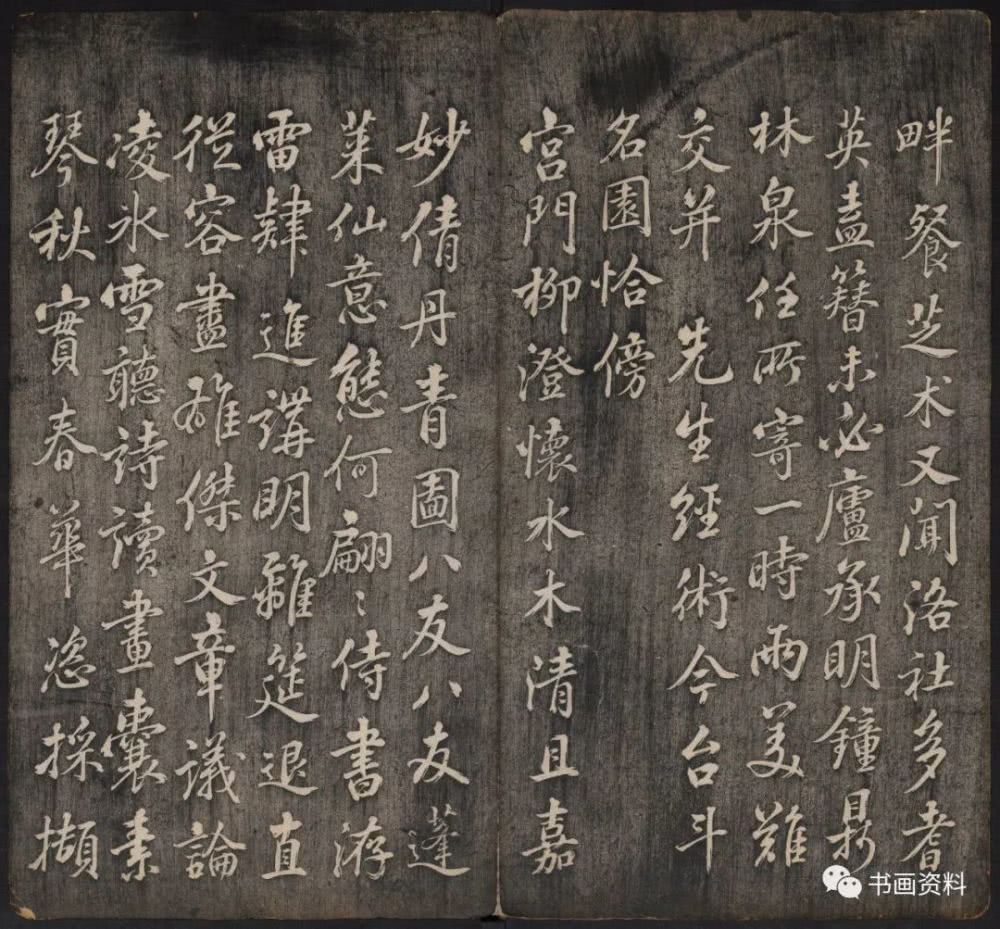 畔餐芝术又聞洛社多耆
英盍簪未必廬承明鐘鼎
林泉任所寄一時兩美難
交并先生經術今台斗
名園恰傍
宮門柳澄懷水木清且嘉
妙倩丹青圖八友八友蓬
萊仙意態何翩〻侍書洊
雷肆進講明離筵退直
從容盡雄傑文章議論
凌氷雪聽詩讀畫囊素
琴秋實春華恣採擷
书画资料